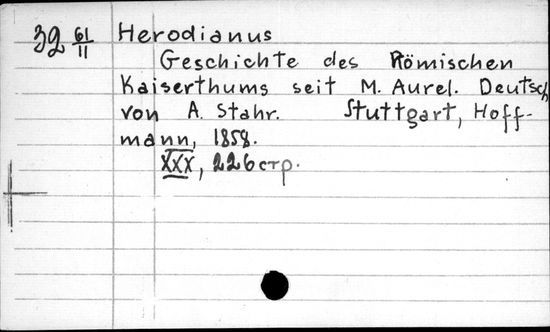 39 61/11 Herodianus
Geschichte des Römischen
Kaiserthums seit M. Aurel. Deutsch
von A. Stahr. Stuttgart, Hoff-
mann, 1858.
XXX, 226 стр.